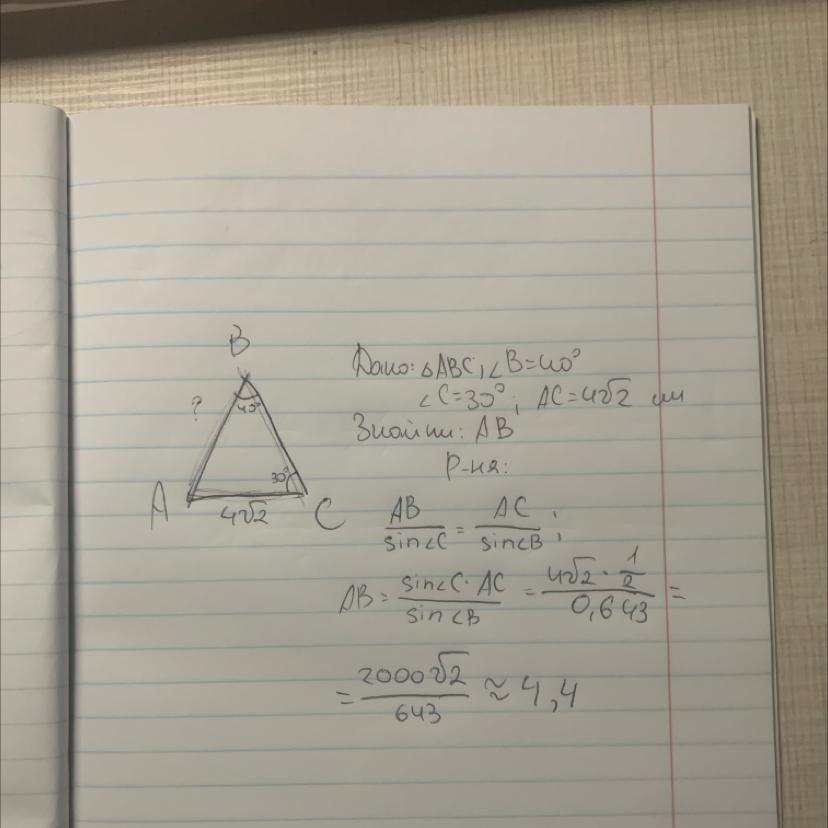 B
?
40°
30°
A
4√2
C
Дано: △ABC, ∠B=40°
∠C=30°; AC=4√2 см
Знайти: AB
Р-ня:
AB/sin∠C = AC/sin∠B;
AB = sin∠C · AC/sin∠B = 4√2 · 1/2/0,643 =
= 2000√2/643 ≈ 4,4